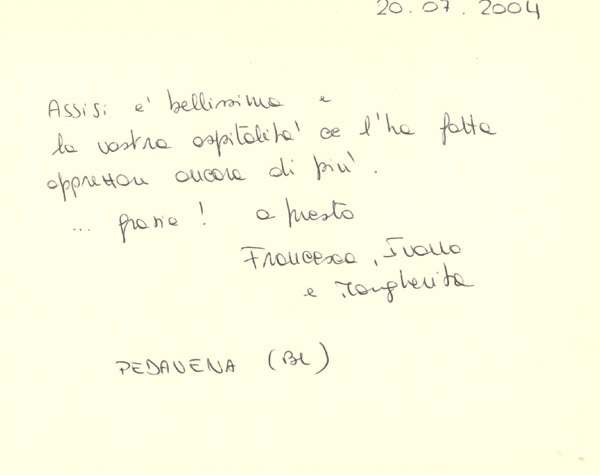 20.07.2004
Assisi e' bellissima e
la vostra ospitalita' ce l'ha fatta
apprezzare ancora di piu'.
... grazie! a presto
Francesca, Ivano
e Margherita
PEDAVENA (BL)